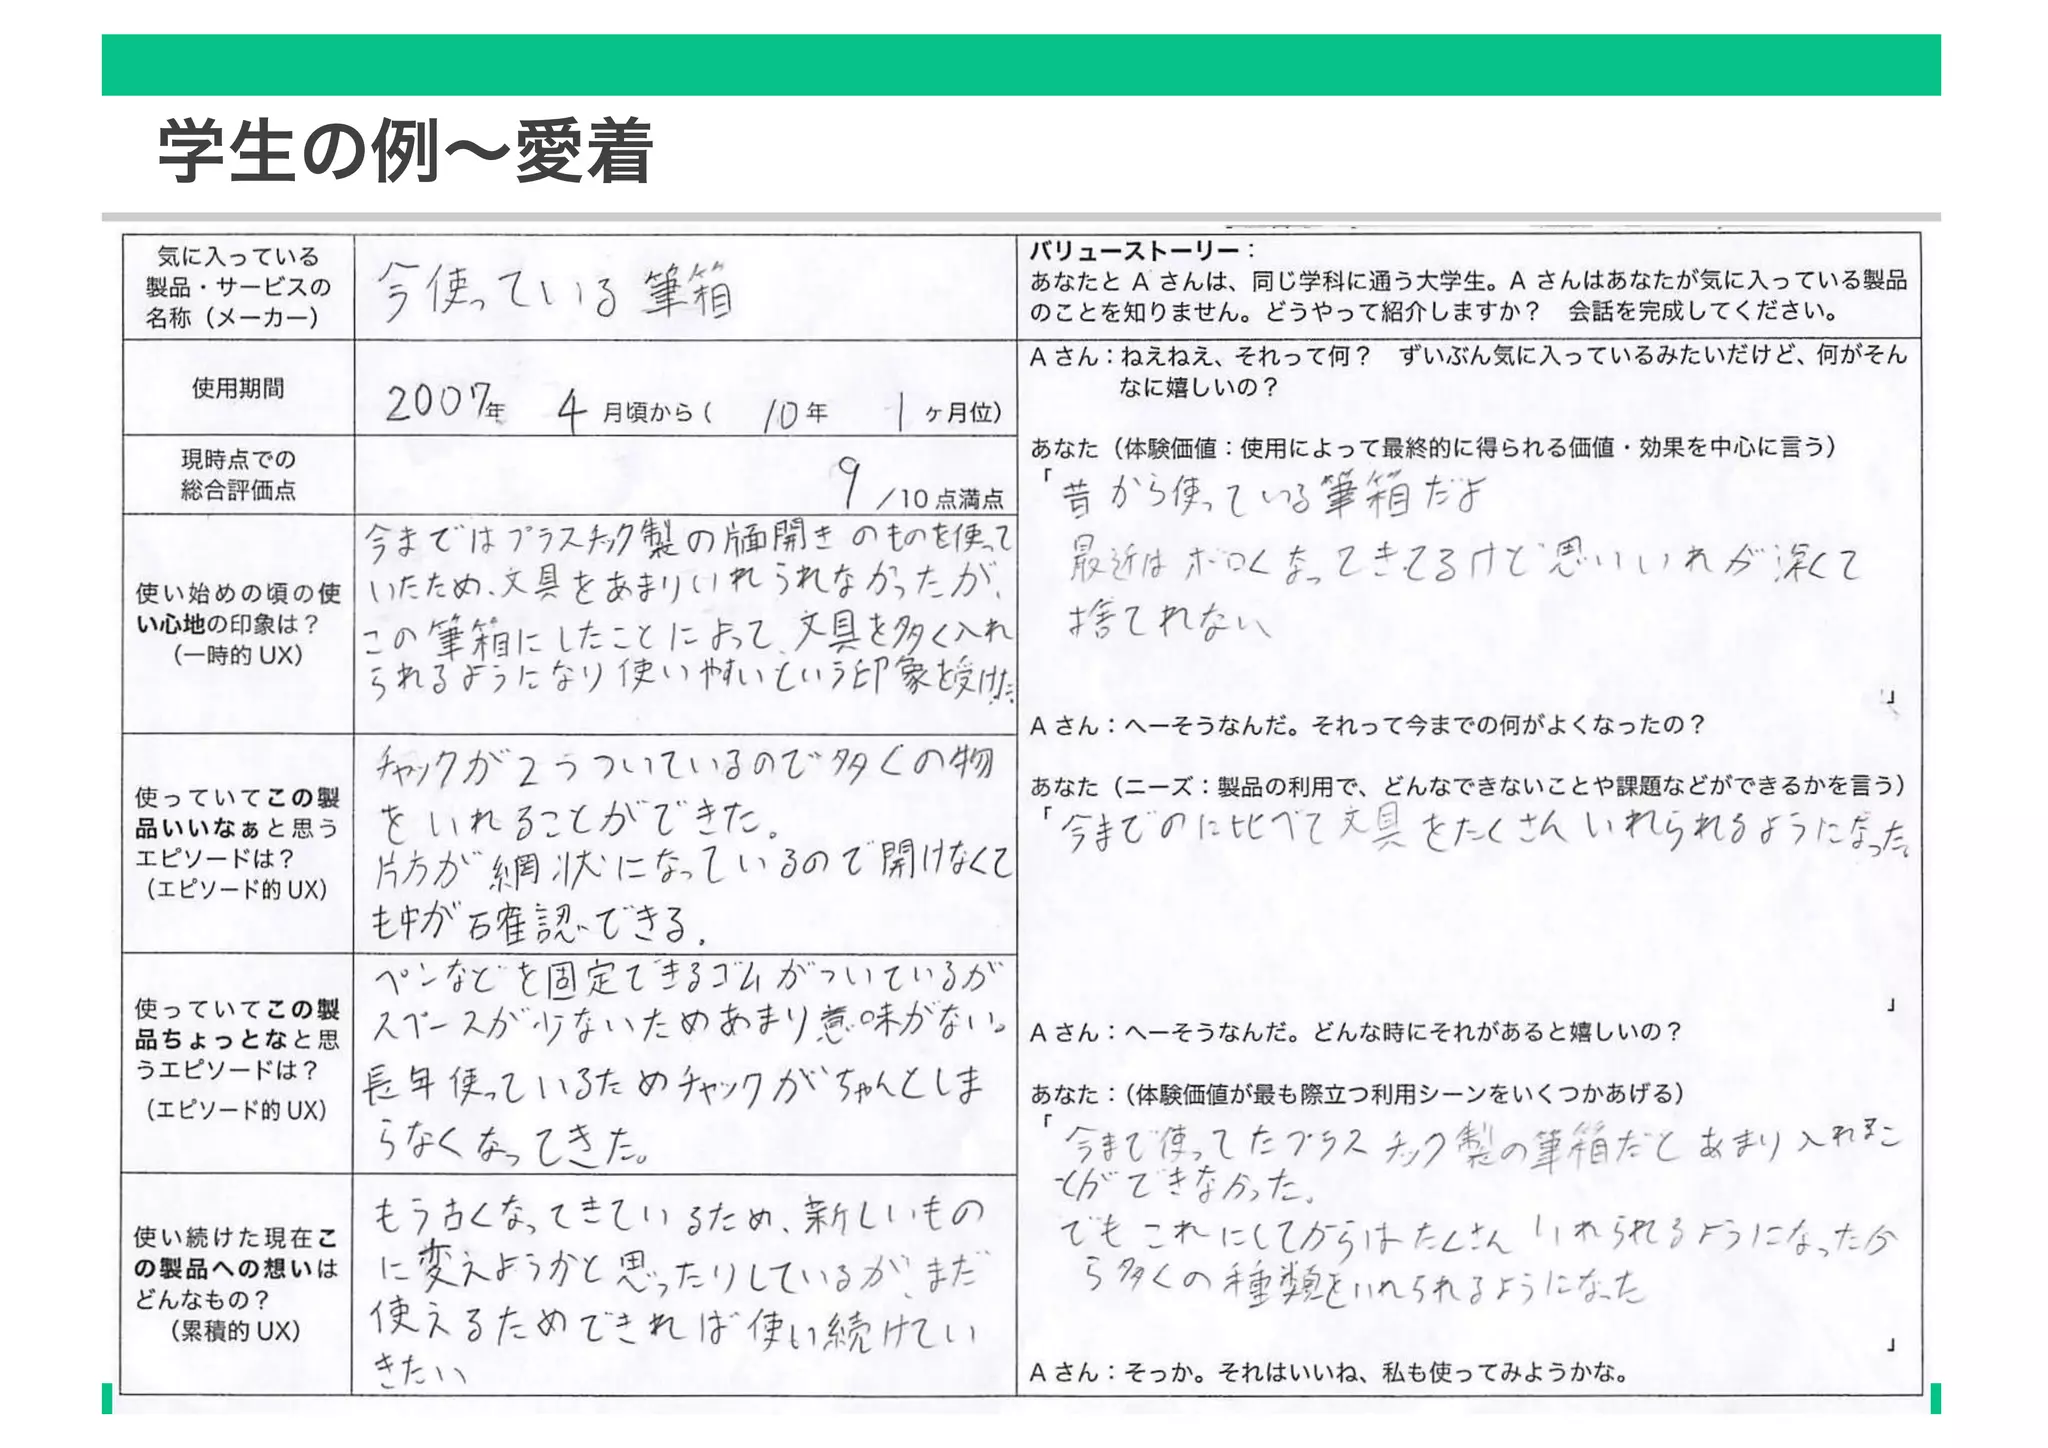 学生の例〜愛着
気に入っている
製品・サービスの
名称（メーカー）
今使っている筆箱
使用期間
2007年 4月頃から( 10年 1ヶ月位)
現時点での
総合評価点
9/10点満点
使い始めの頃の使
い心地の印象は？
（一時的 UX）
今まではプラスチック製の両面開きのものを使って
いたため、文具をあまりいれられなかったが、
この筆箱にしたことによって、文具を多く入れ
られるようになり使いやすいという印象を受けた。
使っていてこの製
品いいなぁと思う
エピソードは？
（エピソード的 UX）
チャックが2つついているので多くの物
をいれることができた。
片方が網状になっているので開けなくて
も中が確認できる。
使っていてこの製
品ちょっとなと思
うエピソードは？
（エピソード的 UX）
ペンなどを固定できるゴムがついているが
スペースが少ないためあまり意味がない。
長年使っているためチャックがちゃんとしま
らなくなってきた。
使い続けた現在こ
の製品への想いは
どんなもの？
（累積的 UX）
もう古くなってきているため、新しいもの
に変えようかと思ったりしているが、まだ
使えるためできれば使い続けてい
きたい
バリューストーリー：
あなたと A さんは、同じ学科に通う大学生。A さんはあなたが気に入っている製品
のことを知りません。どうやって紹介しますか？ 会話を完成してください。
A さん：ねえねえ、それって何？ ずいぶん気に入っているみたいだけど、何がそん
なに嬉しいの？
あなた（体験価値：使用によって最終的に得られる価値・効果を中心に言う）
「昔から使っている筆箱だよ
最近はボロくなってきてるけど思いいれが深くて
捨てれない
」
A さん：へーそうなんだ。それって今までの何がよくなったの？
あなた（ニーズ：製品の利用で、どんなできないことや課題などができるかを言う）
「今までのに比べて文具をたくさんいれられるようになった。
」
A さん：へーそうなんだ。どんな時にそれがあると嬉しいの？
あなた：（体験価値が最も際立つ利用シーンをいくつかあげる）
「今まで使ってたプラスチック製の筆箱だとあまり入れるこ
とができなかった。
でもこれにしてからはたくさんいれられるようになったか
ら多くの種類をいれられるようになった
」
A さん：そっか。それはいいね、私も使ってみようかな。